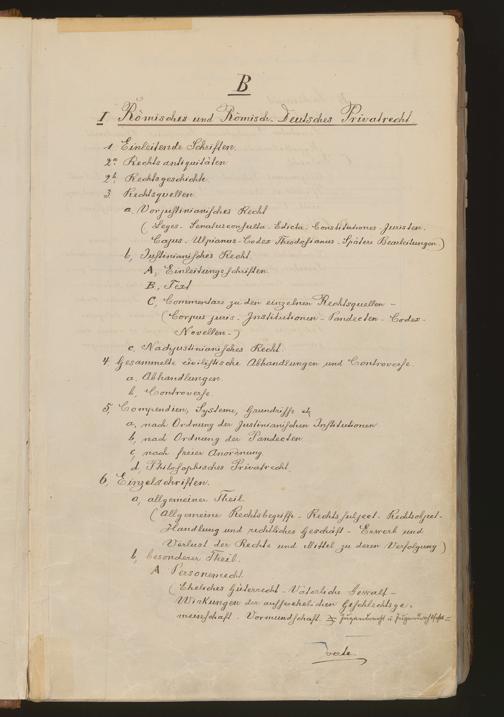 B
I Römisches und Römisch-Deutsches Privatrecht
1 Einleitende Schriften.
2a Rechtsantiquitäten
2b Rechtsgeschichte
3. Rechtsquellen
a. Vorjustinianisches Recht
(Leges - Senatusconsulta - Edicta - Constitutiones - Juristen.
Cajus - Ulpianus - Codex Theodosianus - Spätere Bearbeitungen)
b, Justinianisches Recht
A, Einleitungsschriften
B, Text
C, Commentare zu den einzelnen Rechtsquellen -
(Corpus juris - Institutionen - Pandecten - Codex -
Novellen -)
c, Nachjustinianisches Recht.
4. Gesammelte civilistische Abhandlungen und Controverse
a. Abhandlungen
b, Controverse
5, Compendien, Systeme, Grundrisse etc
a, nach Ordnung der Justinianischen Institutionen
b, nach Ordnung der Pandecten
c, nach freier Anordnung
d, Philosophisches Privatrecht.
6. Einzelschriften.
a, allgemeiner Theil.
(Allgemeine Rechtsbegriffe - Rechtssubject - Rechtsobject -
Handlung und rechtliches Geschäft - Erwerb und
Verlust der Rechte und Mittel zu deren Verfolgung)
b, besonderer Theil.
A Personenrecht
(Eheliches Güterrecht - Väterliche Gewalt -
Wirkungen der aussereheliche Geschlechtsge-
meinschaft - Vormundschaft